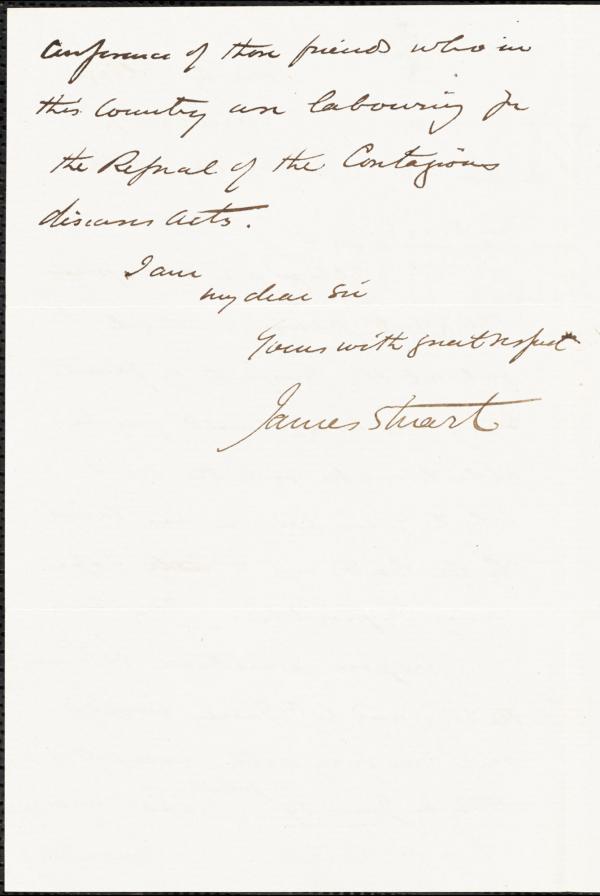 Conference of those friends who in
this Country are labouring for
the Repeal of the Contagious
diseases Acts.
I am
my dear Sir
Yours with great respect
James Stuart